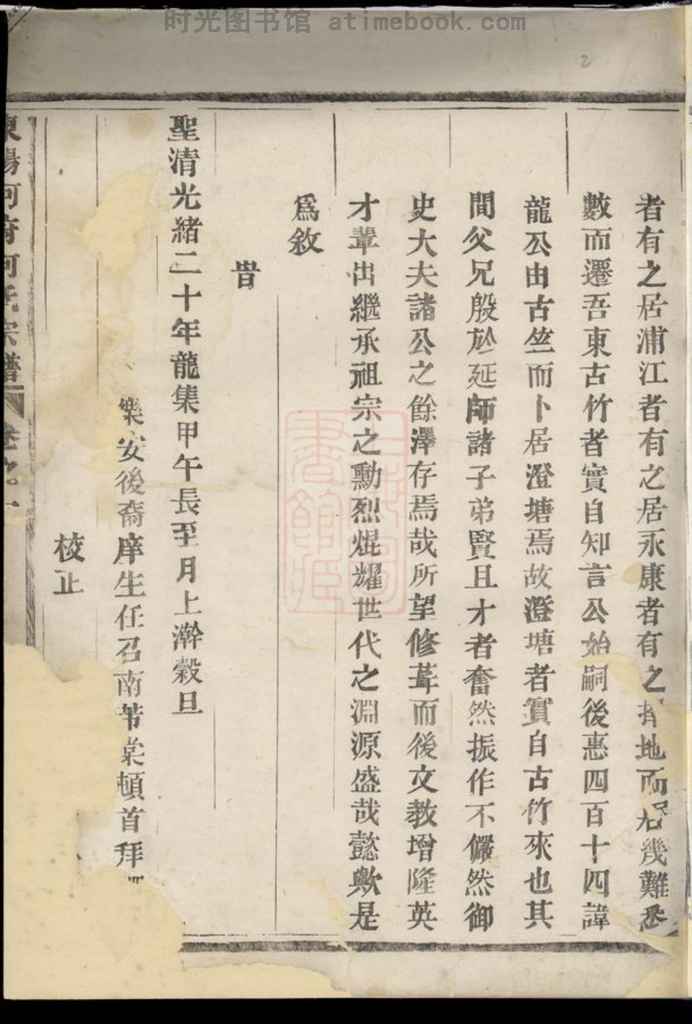 时光图书馆 atimebook.com
2
者有之居浦江者有之居永康者有之擇地而居幾難悉
數而遷吾東古竹者實自知言公始嗣後惠四百十四諱
龍公由古竺而卜居澄塘焉故澄塘者實自古竹來也其
間父兄殷於延師諸子弟賢且才者奮然振作不儼然御
史大夫諸公之餘澤存焉哉所望修葺而後文教增隆英
才輩出繼承祖宗之勳烈焜耀世代之淵源盛哉懿歟是
為敘
旹
聖清光緒二十年龍集甲午長至月上澣穀旦
樂安後裔庠生任召南芾棠頓首拜
校正
東陽何府何氏宗譜 卷之一